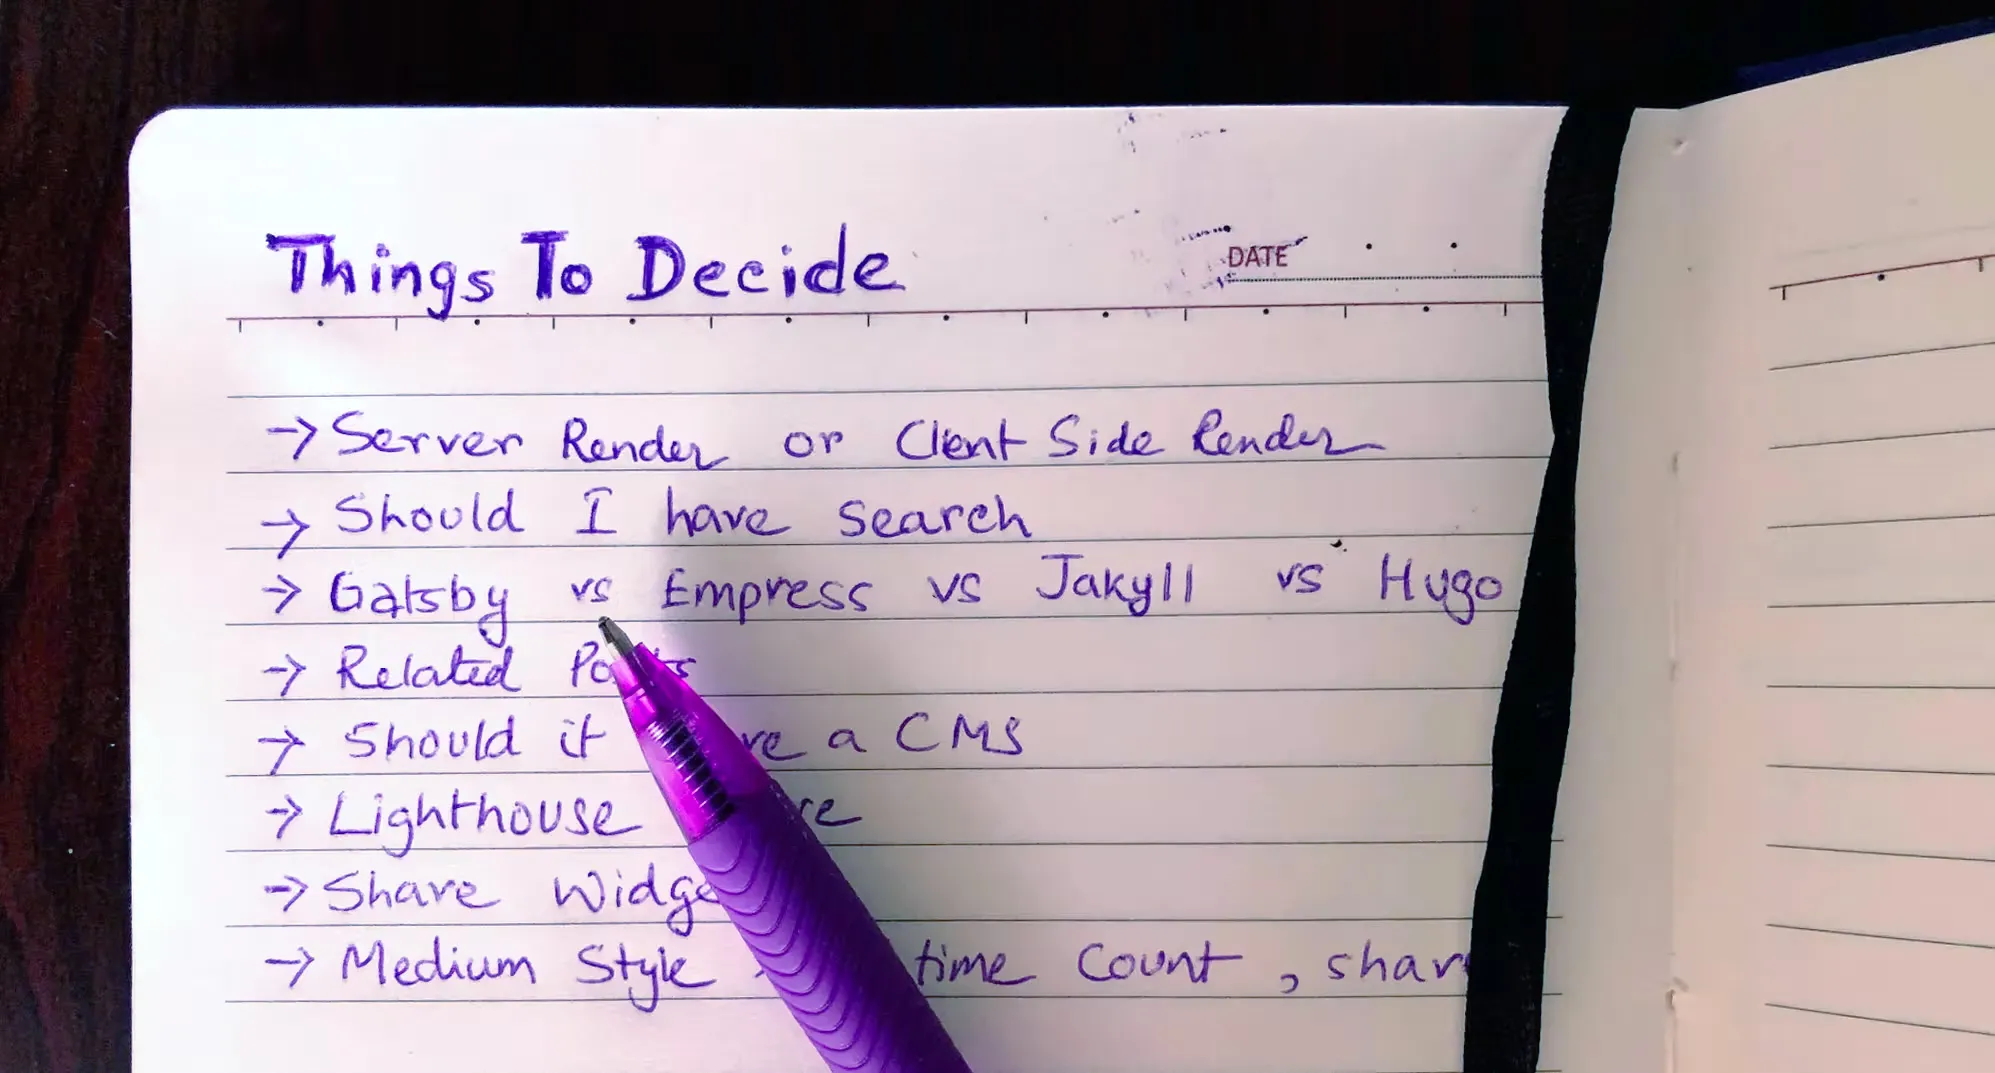 Things To Decide
DATE
→ Server Render or Client Side Render
→ Should I have search
→ Gatsby vs Empress vs Jakyll vs Hugo
→ Related
→ Should it a CMS
→ Lighthouse
→ Share
→ Medium Style time Count ,